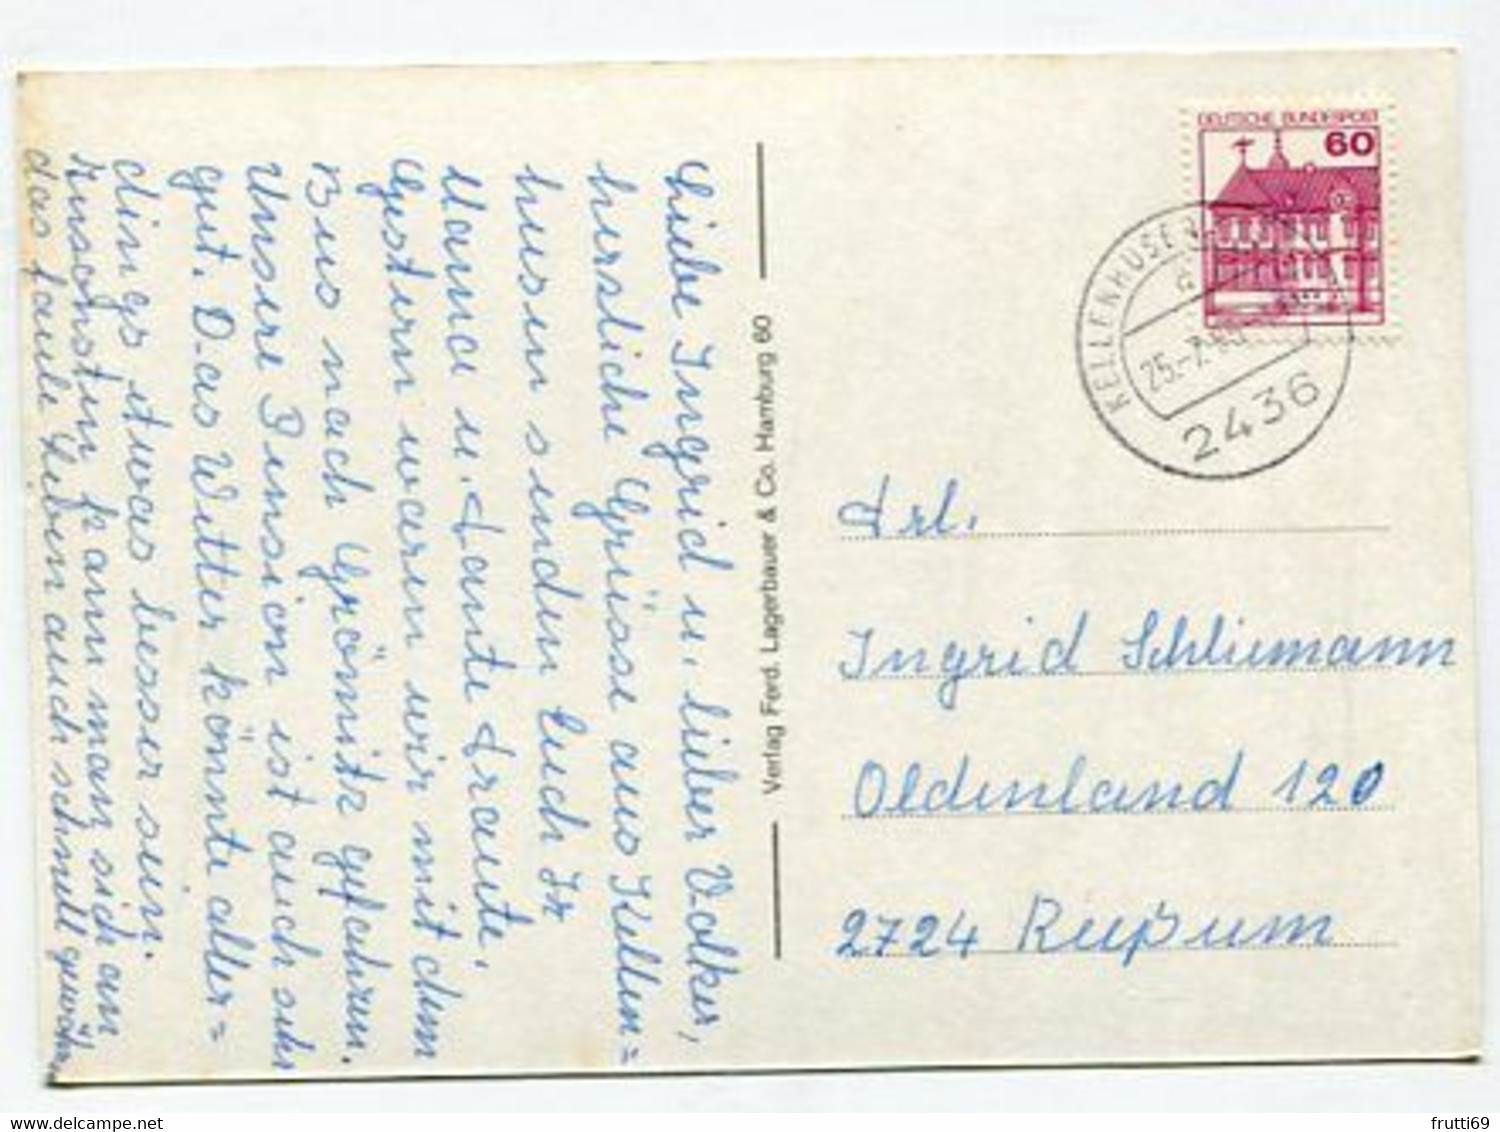 Liebe Ingrid u. lieber Volker,
herzliche Grüsse aus Kellen=
husen senden Euch Ir
Mama u. Tante Traute.
Gestern waren wir mit dem
Bus nach Grömitz gefahren.
Unsere Pension ist auch sehr
gut. Das Wetter könnte aller=
dings etwas besser sein.
Ansonsten kann man sich an
das faule Leben auch schnell gewöhn.
Verlag Ferd. Lagerbauer & Co. Hamburg 60
DEUTSCHE BUNDESPOST
60
KELLENHUSEN
25.-7.
2436
Frl.
Ingrid Schliemann
Oldenland 120
2724 Reeßum
frutti69